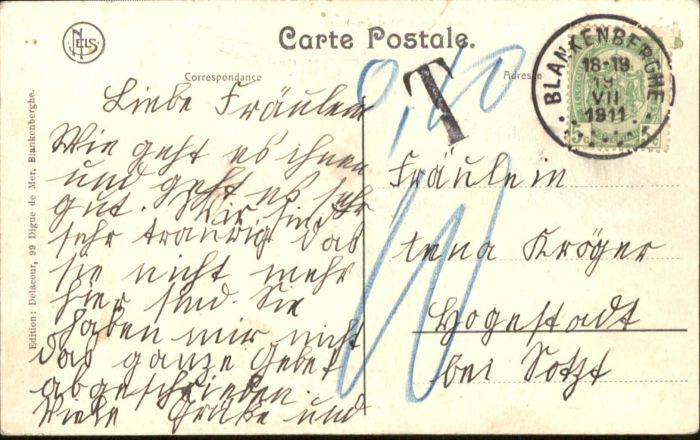 NELS
Carte Postale.
Correspondance
Adresse
BLANKENBERGHE
18-19
9
VII
1911
T
0,10
10
Edition: Delacour, 99 Digue de Mer, Blankenberghe.
Liebe Fräulein
Wie geht es ihnen
und geht es sehr
gut. Wir sind
sehr traurig das
sie nicht mehr
hier sind. Sie
haben mir nicht
das ganze Gebet
abgeschrieben
Viele Grüße und
Fräulein
Lena Kröger
Hogestadt
bei